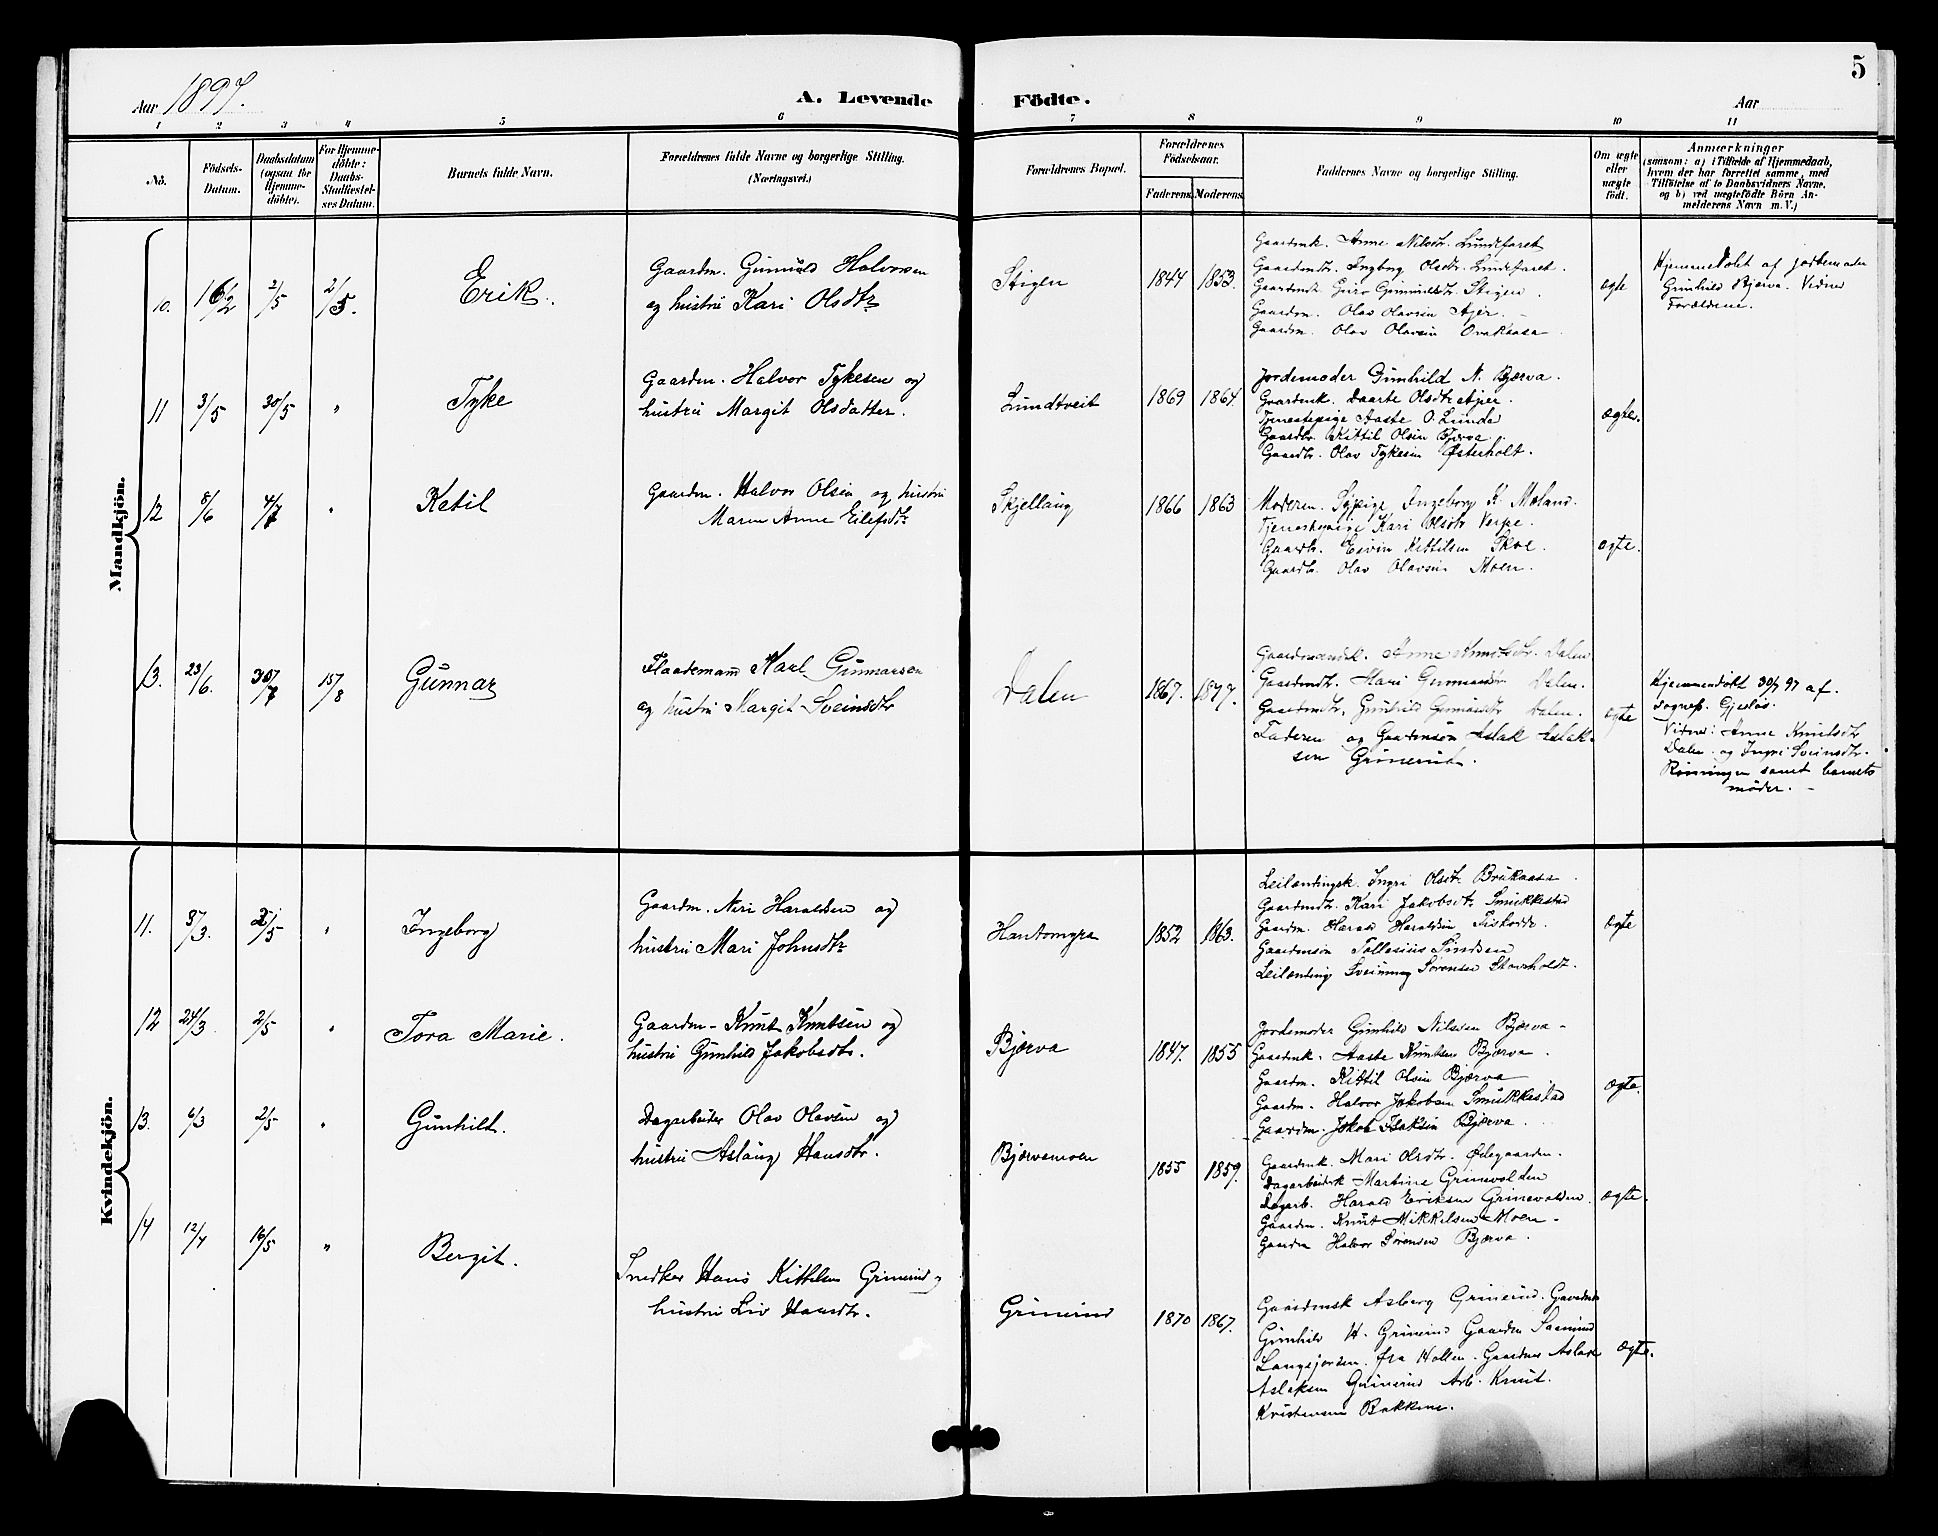 5
Aar 1897.
A. Levende Födte.
Aar
1 2 3 4 5 6 7 8 9 10 11
No.
Födsels-Datum.
Daabsdatum (ogsaa for Hjemme-döbte).
For Hjemme-döbte: Daabs-Stadfæstel-ses Datum.
Barnets fulde Navn.
Forældrenes fulde Navne og borgerlige Stilling. (Næringsvei.)
Forældrenes Bopæl.
Forældrenes Födselsaar.
Faderens. Moderens.
Faddernes Navne og borgerlige Stilling.
Om ægte eller uægte födt.
Anmærkninger
(saasom: a) i Tilfælde af Hjemmedaab,
hvem der har forrettet samme, med
Tilföielse af to Daabsvidners Navne,
og b) ved uægtefödte Börn An-
melderens Navn m. V.)
Mandkjön.
10. 16/2 2/5 2/5. Erik.
Gaardm. Gunnuld Halvorsen
og hustru Kari Olsdtr
Stigen 1844 1853.
Gaardmk. Anne Nilsdtr. Lundefaret
Gaardmdtr. Ingborg Olsdtr. Lundefaret.
Gaardmdt. Guro Gunnuldsdtr. Stigen.
Gaardm. Olav Olavsen Ajer.
Gaardm. Olav Olavsen Ovakaasa.
ægte
Hjemmedøbt af jordemoder
Gunhild Bjerva. Vidner
Forældrene.
11 3/5 30/5 " Tyke
Gaardm. Halvor Tykesen og
hustru Margit Olsdatter.
Lundtveit 1869 1864.
Jordemoder Gunhild N. Bjærva.
Gaardmk. Daarte Olsdtr Ajer.
Tjenestepige Aaste O. Lunde
Gaardbr. Kittil Olsen Bjerva.
Gaardbr. Olav Tykesen Østerholt.
ægte.
12 8/6 4/7 " Ketil
Gaardm. Halvor Olsen og hustru
Maren Anne Eilefsdtr
Skjellaug 1866 1863
Moderen. Sypige Ingeborg K. Mæland.
Tjenestepige Kari Olsdtr Verpe.
Gaardb. Eivin Kittilsen Skoe.
Gaardb. Olav Olavsen Moen.
ægte.
13. 23/6. 30/7 15/8 Gunnar
Flaademand Karl Gunnarsen
og hustru Margit Sveinsdtr
Dalen 1867. 1877.
Gaardmandsk. Anne Knutsdtr. Dalen
Gaardmdtr. Mari Gunnarsdtr Dalen.
Gaardmdtr. Gunhild Gunnarsdtr Dalen.
Faderen og Gaardmsøn Aslak Aslak-
sen Grinerud.
ægte
Hjemmedøbt 30/7 97 af
sognep. Gjesløs.
Vidner: Anne Knutsdtr
Dalen og Ingri Sveinsdtr.
Rønningen samt barnets
moder.
Kvindekjön.
11. 3/3. 2/5 " Ingeborg
Gaardm. Neri Haraldsen og
hustru Mari Johnsdtr
Hantomyra 1852 1863.
Leilændingsk. Ingri Olsdtr Brukaasa
Gaardmdtr. Kari Jakobsdtr Smukkestad
Gaardm. Harald Haraldsen
Gaardmsøn Tollesius
Leilænding Sveinung Sørensen
ægte
12 24/3. 2/5 " Tora Marie.
Gaardm. Knut Knutsen og
hustru Gunhild Jakobsdtr.
Bjærva 1847. 1855
Jordemoder Gunhild Nilsen Bjærva
Gaardmk. Aaste Knutsen Bjærva.
Gaardm. Kittil Olsen Bjærva
Gaardm. Halvor Jakobsen Smukkestad
Gaardm. Jakob Isaksen Bjærva.
ægte.
13. 6/3 2/5 " Gunhilt.
Dagarbeider Olav Olavsen og
hustru Aslaug Hansdtr.
Bjærvamoen 1855 1859.
Gaardmk. Mari Olsdtr. Ødegaarden.
Dagarbeiderk Martine Grinevolden
Dagarb. Harald Eriksen Grinevolden
Gaardm. Knut Mikkelsen Moen.
Gaardm Halvor Sørensen Bjærva.
ægte.
14 12/4 16/5 " Bergit.
Snedker Hans Kittilsen Grinerud og
hustru Liv Hansdtr.
Grinerud 1870 1867.
Gaardmsk Asberg Grinerud. Gaardm
Gunhild H. Grinerud Gaardm
Langsjordsen. fra Hollen. Gaardm Aslak
Aslaksen Grinerud Arb. Knut
Kristensen Bakkene.
ægte.